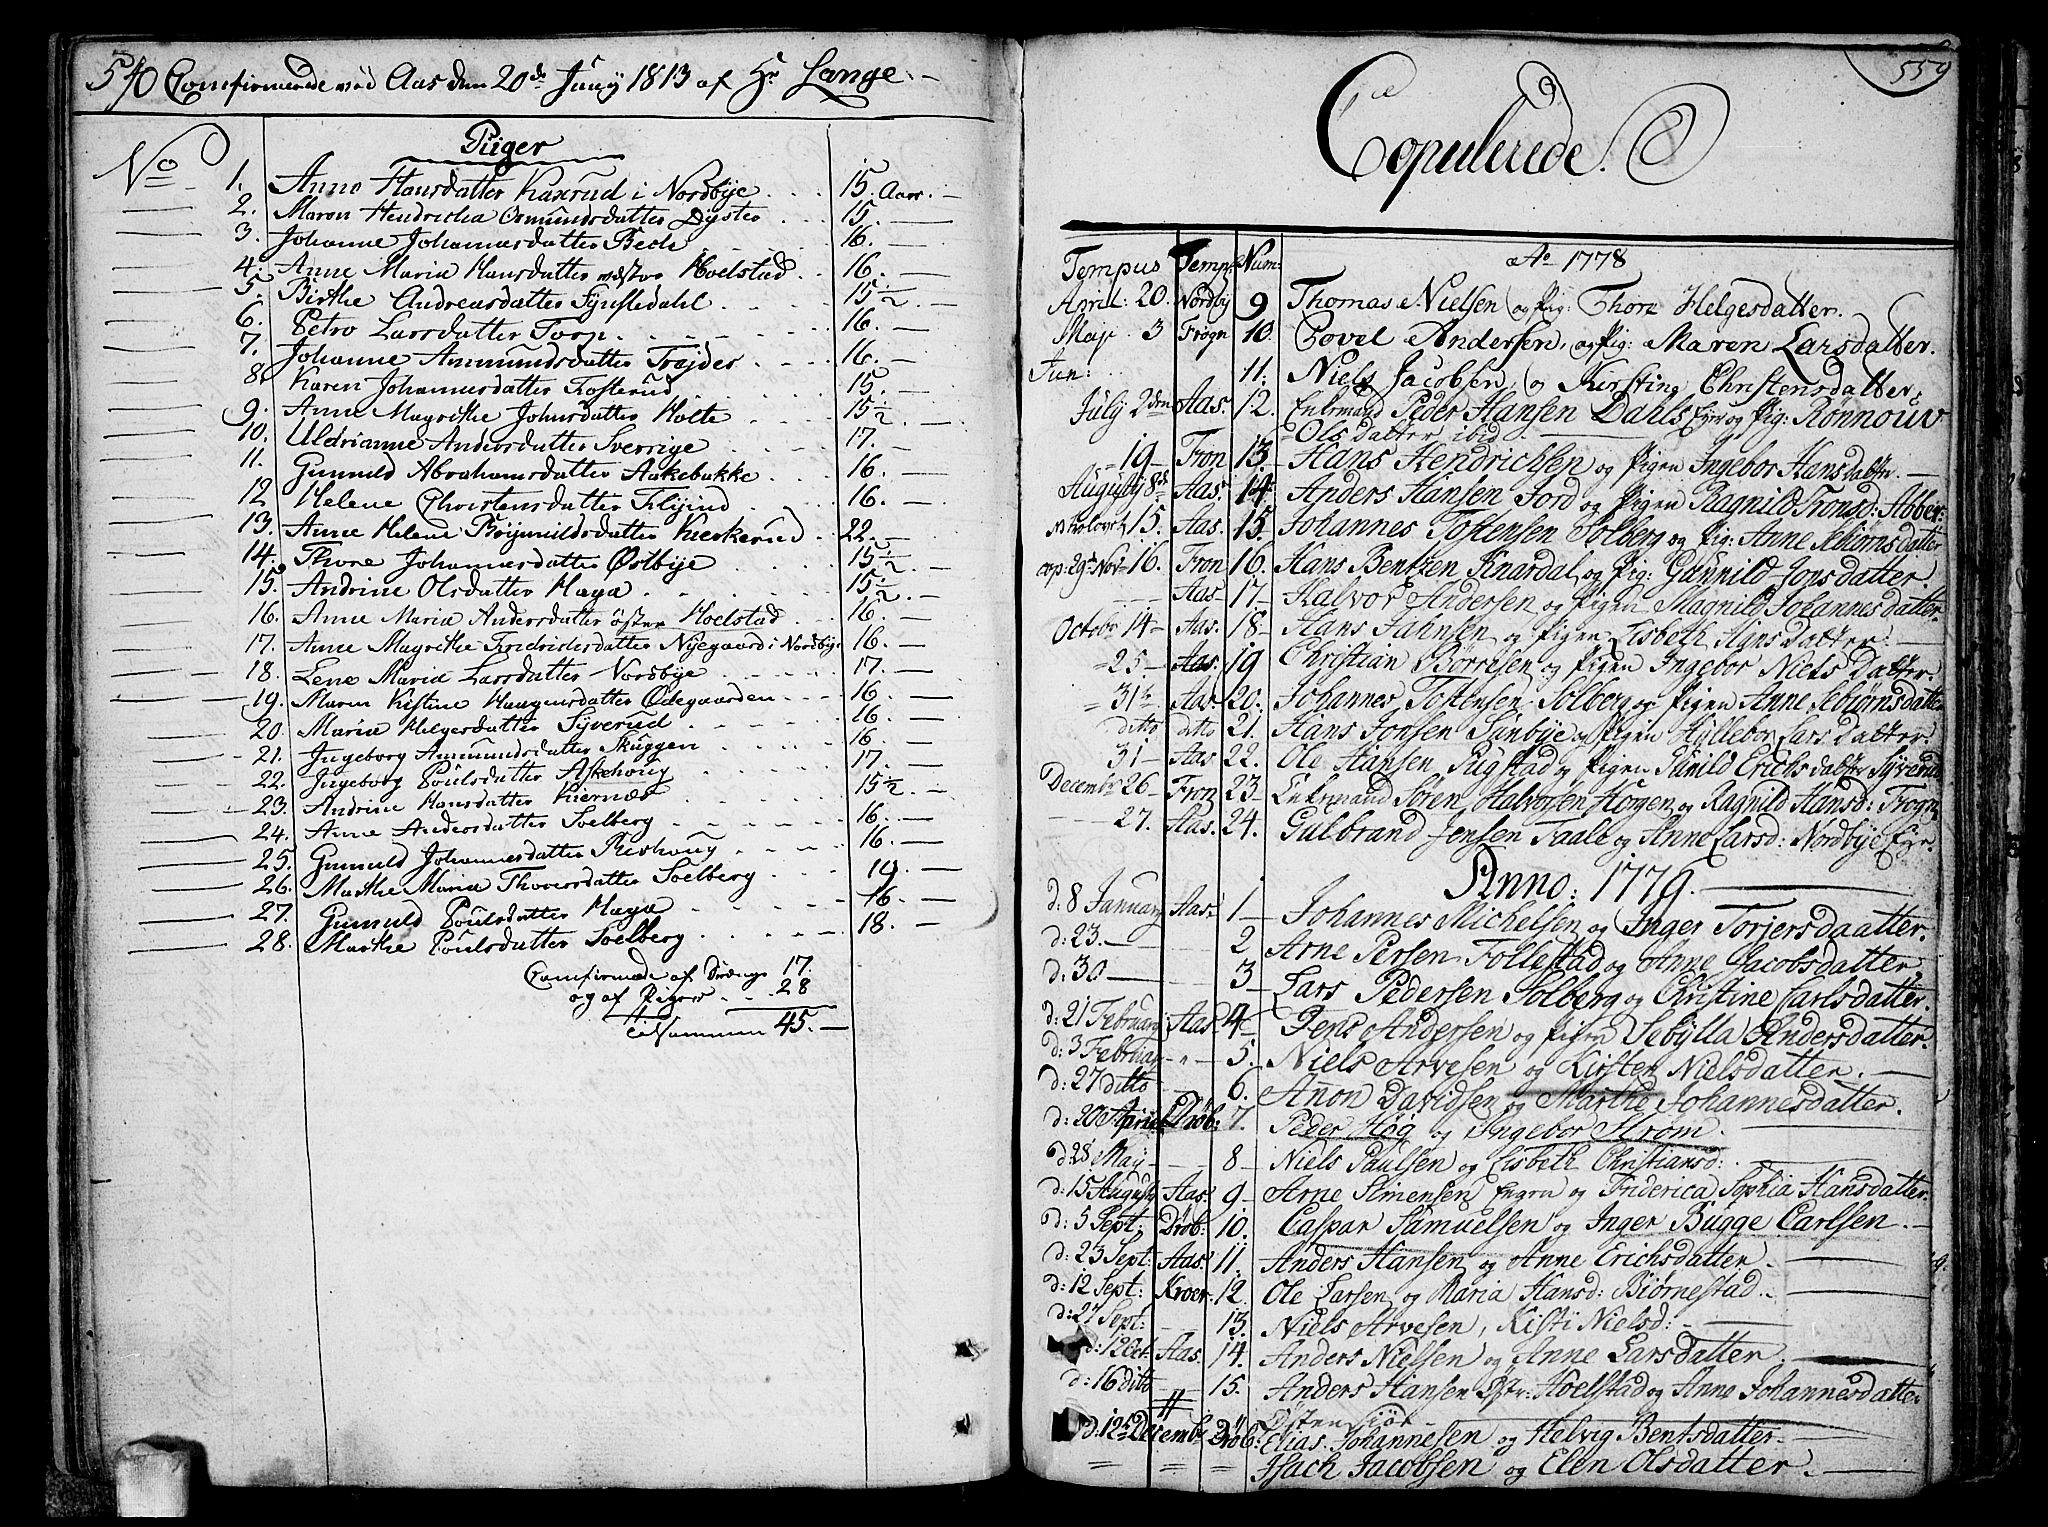 540 Confirmerede ved Aas den 20de Juny 1813 af Hr Lange
Piger
No 1. Anne Hansdatter Kaxrud i Nordbÿe 15 Aar
2. Maren Hendricha Osmundsdatter Dÿster 15.
3. Johanne Johannesdatter Bede 16.
4. Anne Maria Hansdatter vestre Hoelstad 16.
5. Birthe Andreasdatter 15 1/2
6. Petro Larsdatter Torp 16.
7. Johanne Ammundsdatter Trøjder 16.
8. Karen Johannesdatter Fosterud 15.
9. Anne Magrethe Johnsdatter Holte 15 1/2
10. Uldrianne Andersdatter Sverrige 17.
11. Gunnild Abrahamsdatter Aakebakke 16.
12 Helene Christensdatter 16.
13. Anne Helene Kierkerud 22.
14. Thore Johannesdatter Østbÿe 15 1/2
15. Andrine Olsdatter Haga 15 1/2
16. Anne Maria Andersdatter öster Hoelstad 16.
17. Anne Magrethe Fredrichsdatter Nÿegaard i Nordbÿe 16.
18. Lene Maria Larsdatter Nordbÿe 17.
19. Maren Kistine Haagensdatter Ødegaarden 16
20. Maria Helgesdatter Sÿverud 16.
21. Ingeborg Ammundsdatter Skuggen 16
22. Ingeborg Poulsdatter Askehoug 17.
23. Andrine Hansdatter Kiernæs 15 1/2
24. Anne Andersdatter Soelberg 16.
25. Gunnild Johannesdatter Reshoug 16.
26. Marthe Maria Thoresdatter Soelberg 19
27. Gunnild Poulsdatter Haga 16
28. Marthe Poulsdatter Soelberg 18.
Confirmerede af Drenge 17.
og af Piger 28
Tilsammen 45.
559
Copulerede.
Tempus Templ: Num: Ao 1778
April: 20. Nordby 9 Thomas Nielsen og Pig: Thore Helgesdatter.
Maji 3 Frogn 10. Povel Andersen, og Pig: Maren Larsdatter.
Jun: 11. Niels Jacobsen, og Kirsting Christensdatter
July 2den Aas. 12. Enkemand Peder Hansen Dahls Eÿe og Pig: Ronnouv
Olsdatter ibid
19 Fron 13. Hans Hendrichsen og Pigen Ingebor Hansdatter.
Augusty 8de Aas. 14 Anders Hansen Ford og Pigen Ragnild Tronsd: Abber:
15. Aas. 15. Johannes Tostensen Solberg og Pig: Anne Sebiørnsdatter
cop: 29de Nov 16. Fron 16. Hans Bentzen Knardal og Pig: Gunnild Jonsdatter.
Aas 17. Halvor Andersen og Pigen Magnild Johannesdatter
Octobr 14 Aas. 18 Hans Jahnsen og Pigen Lisbeth Hansdatter
25 Aas. 19 Christian Börresen og Pigen Ingebor Nielsdatter.
31te Aas. 20. Johannes Tostensen Solberg og Pigen Anne Sebiørnsdatter
ditto ditto 21. Hans Jonsen Sundbÿe og Pigen Hyllebor Larsdatter.
31 Aas 22. Ole Hansen Rugstad og Pigen Gunild Erichsdatter Sÿverud
Decembr 26 Fron 23 Enkemand Søren Halvorsen Horgen og Ragnild Hansd: Frogn
27. Aas. 24. Gulbrand Jensen Faale og Anne Larsd: Nordbÿe Eje.
Anno: 1779.
d: 8 January Aas. 1 Johannes Michelsen og Inger Torjersdaatter.
d: 23. 2 Arne Persen Follestad og Anne Jacobsdatter
d: 30 3 Lars Pedersen Solberg og Christine Carlsdatter.
d: 21 February Aas 4 Jens Andersen og Pigen Sebÿlla Andersdatter.
d: 3 February 5. Niels Arvesen og Kirsten Nielsdatter.
d: 27 ditto 6. Anon Davidsen og Marthe Johannesdatter.
d: 20 April Drøb: 7. Peder Høg og Ingebor Strøm.
d 28 May 8 Niels Paulsen og Lisbeth Christiansd:
d: 15 August Aas. 9 Arne Simensen Engen og Friderica Sophia Hansdatter.
d: 5 Sept: Drøb: 10. Caspar Samuelsen og Inger Bugge Carlsen.
d: 23 Sept: Aas. 11. Anders Hansen og Anne Erichsdatter.
d: 12 Sept: Kroer 12. Ole Larsen og Maria Hansd: Biørnestad.
d: 27 Sept: 13. Niels Arvesen, Kisti Nielsd:
d: 12 Oct. Aas. 14. Anders Nielsen og Anne Larsdatter.
d: 16 ditto 15. Anders Hansen Østr: Hoelstad og Anne Johannesdatter
Østensiör
d: 12te Decembr Drøb: Elias Johannesen og Helvig Bentsdatter
= = = Isach Jacobsen og Elen Olsdatter.